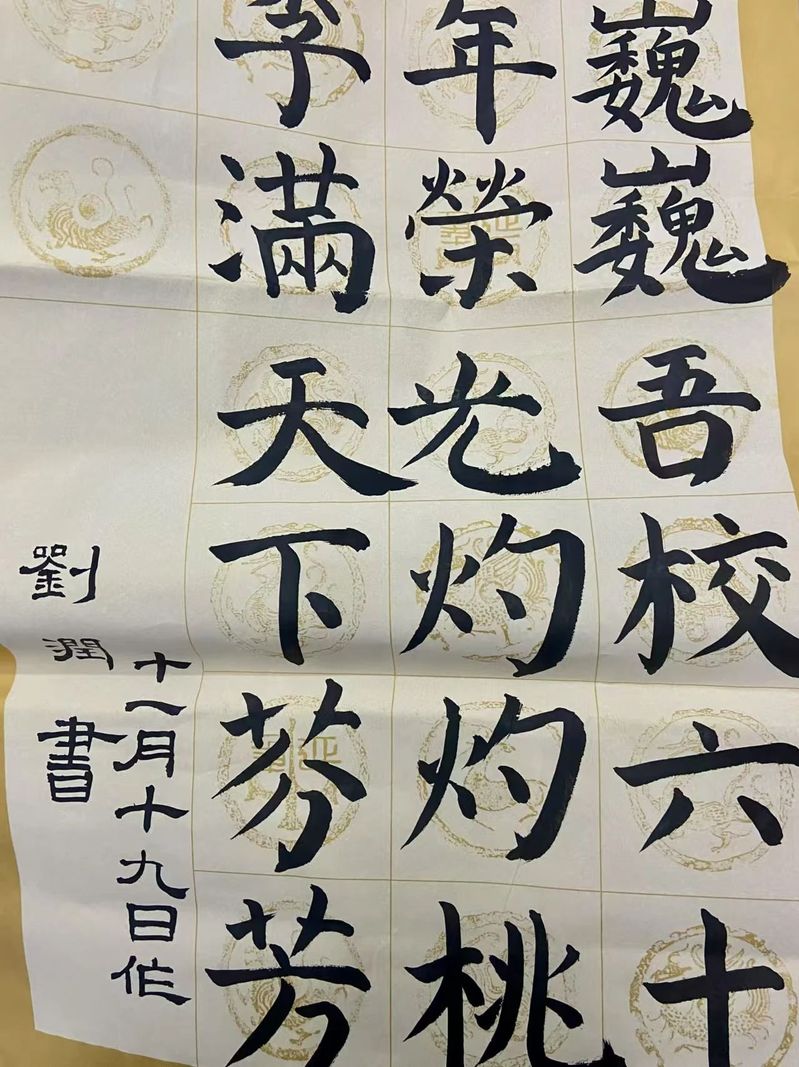 巍巍吾校六十
年榮光灼灼桃
李滿天下芬芳
十一月十九日作
劉潤書